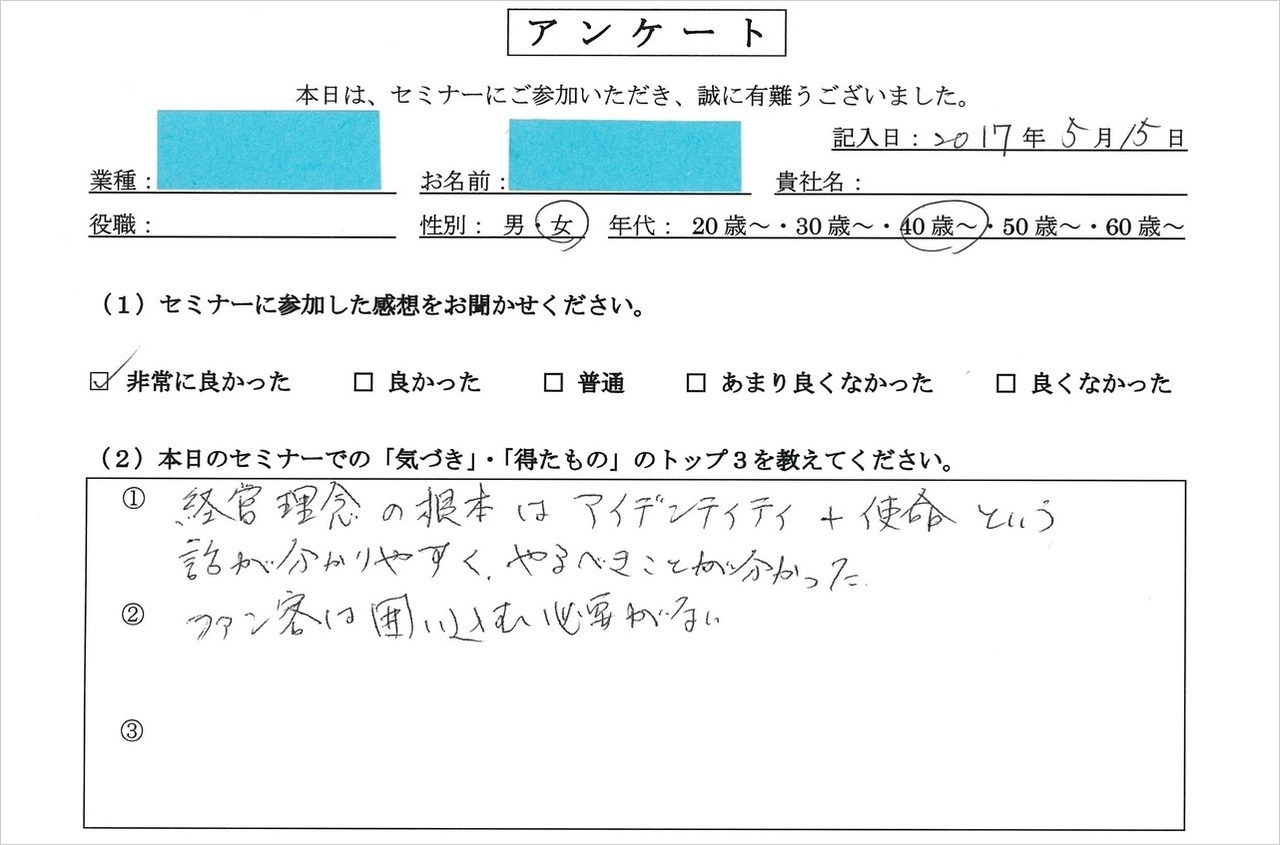 アンケート
本日は、セミナーにご参加いただき、誠に有難うございました。
記入日：2017年5月15日
業種： お名前： 貴社名：
役職： 性別： 男・女 年代： 20歳～・30歳～・40歳～・50歳～・60歳～
（1）セミナーに参加した感想をお聞かせください。
☑ 非常に良かった □ 良かった □ 普通 □ あまり良くなかった □ 良くなかった
（2）本日のセミナーでの「気づき」・「得たもの」のトップ3を教えてください。
① 経営理念の根本はアイデンティティ＋使命という
話が分かりやすく、やるべきことが分かった。
② ファン客は囲い込む必要がない
③